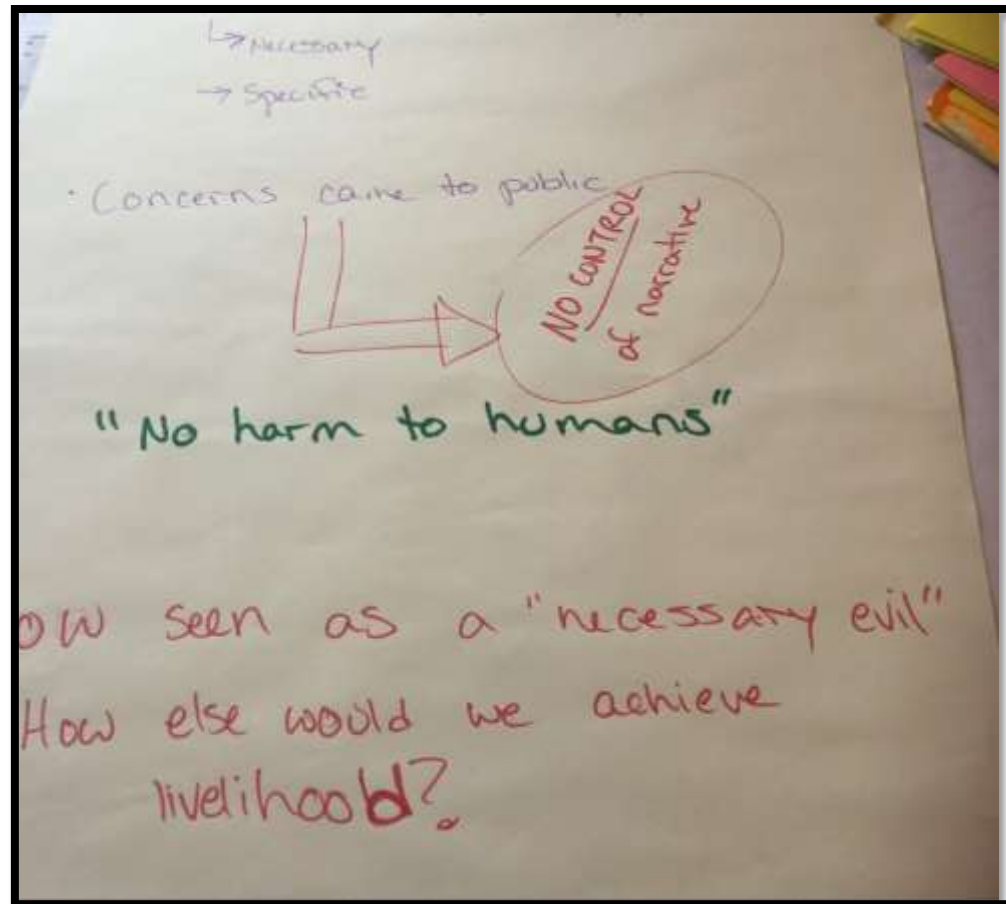 ↳ Necessary
→ Specific
· Concerns came to public
NO CONTROL
of narrative
"No harm to humans"
ow seen as a "necessary evil"
How else would we achieve
livelihood?